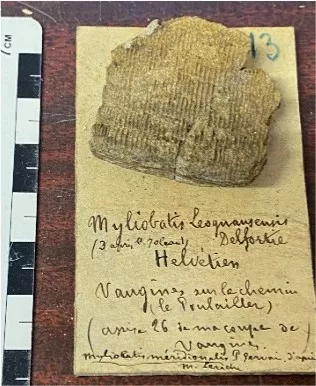 1 CM
13
Myliobatis Leognanensis
Delfortrie
Helvétien
Vaugines sur le chemin
(le Poulailler)
(assise 26 de ma coupe de
Vaugines.
Myliobatis méridionalis P. Gervais d'après
M. Leriche